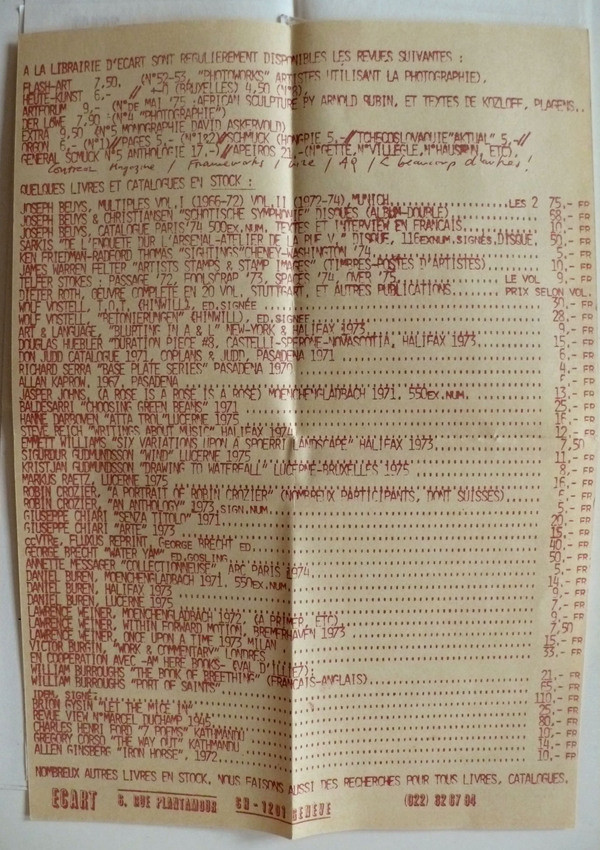 A LA LIBRAIRIE D'ECART SONT REGULIEREMENT DISPONIBLES LES REVUES SUIVANTES :
FLASH-ART 7.50, (N°52-53, "PHOTOWORKS" ARTISTES UTILISANT LA PHOTOGRAPHIE),
HEUTE-KUNST 6.- // +-0 (BRUXELLES) 4,50 (N°8),
ARTFORUM 9,- (N°DE MAI '75 :AFRICAN SCULPTURE BY ARNOLD RUBIN, ET TEXTES DE KOZLOFF, PLAGENS,.
DER LÖWE 7,90 (N°4 "PHOTOGRAPHIE")
EXTRA 9,50 (N°5 MONOGRAPHIE DAVID ASKERVOLD)
ORGON 6,- (N°1)//PAGES 5,- (N°1&2)//SCHMUCK (HONGRIE 5,-//TCHECOSLOVAQUIE"AKTUAL" 5,-//
GENERAL SCMUCK N°5 ANTHOLOGIE 17,-)//APEIROS 21,-(N°GETTE,N°VILLEGLE,N°HAUSMAN, ETC),
Control Magazine / Frameworks / / AQ / & beaucoup d'autres!
QUELQUES LIVRES ET CATALOGUES EN STOCK :
JOSEPH BEUYS, MULTIPLES VOL.I (1966-72) VOL.II (1972-74),MUNICH LES 2 75,- FR
JOSEPH BEUYS & CHRISTIANSEN "SCHOTISCHE SYMPHONIE" DISQUES (ALBUM-DOUBLE) 68,- FR
JOSEPH BEUYS, CATALOGUE PARIS'74 500EX.NUM, TEXTES ET INTERVIEW EN FRANCAIS 10,- FR
SARKIS "DE L'ENQUETE DUR L'ARSENAL-ATELIER DE LA RUE V." DISQUE, 116EXNUM.SIGNÉS,DISQUE, 50,- FR
KEN FRIEDMAN-RADFORD THOMAS "SIGHTINGS"CHENEY-WASHINGTON
JAMES WARREN FELTER "ARTISTS STAMPS & STAMP IMAGES" (TIMBRES-POSTES D'ARTISTES) 10,- FR
TELFER STOKES : PASSAGE '72, FOOLSCRAP '73, SPACES '74, OVER '75 LE VOL 9,- FR
DIETER ROTH, OEUVRE COMPLETE EN 20 VOL. STUTTGART, ET AUTRES PUBLICATIONS PRIX SELON VOL.
WOLF VOSTELL, T.O.T. (HINWIL), ED.SIGNÉE 30,- FR
WOLF VOSTELL "BETONIERUNGEN" (HINWIL), ED.SIGNÉE 28,- FR
ART & LANGUAGE, "BLURTING IN A & L" NEW-YORK & HALIFAX 1973 9,- FR
DOUGLAS HUEBLER "DURATION PIECE #8, CASTELLI-SPERONE-NOVASCOTIA, HALIFAX 1973 15,- FR
DON JUDD CATALOGUE 1971, COPLANS & JUDD, PASADENA 1971 6,- FR
RICHARD SERRA "BASE PLATE SERIES" PASADENA 1970 4,- FR
ALLAN KAPROW, 1967, PASADENA
JASPER JOHNS, (A ROSE IS A ROSE IS A ROSE) MOENCHENGLADBACH 1971, 550EX.NUM. 13,- FR
BALDESARRI "CHOOSING GREEN BEANS" 1971 25,- FR
HANNE DARBOVEN "ATTA TROL"LUCERNE 1975
STEVE REICH "WRITINGS ABOUT MUSIC" HALIFAX 1974 12,- FR
EMMETT WILLIAMS "SIX VARIATIONS UPON A SPOERRI LANDSCAPE" HALIFAX 1973 7,50
SIGURDUR GUDMUNDSSON "WIND" LUCERNE 1975 11,- FR
KRISTJAN GUDMUNDSSON "DRAWING TO WATERFALL" LUCERNE-BRUXELLES 1975 8,- FR
MARKUS RAETZ, LUCERNE 1975 16,- FR
ROBIN CROZIER, "A PORTRAIT OF ROBIN CROZIER" (NOMBREUX PARTICIPANTS, DONT SUISSES)
ROBIN CROZIER "AN ANTHOLOGY" 1973,SIGN.NUM. 5,- FR
GIUSEPPE CHIARI "SENZA TITOLO" 1971 20,- FR
GIUSEPPE CHIARI "ARTE" 1973 15,- FR
CCVTRE, FLUXUS REPRINT, GEORGE BRECHT ED 40,- FR
GEORGE BRECHT "WATER YAM" ED.GOSLING 50,- FR
ANNETTE MESSAGER "COLLECTIONNEUSE", ARC PARIS 1974 5,- FR
DANIEL BUREN, MOENCHENGLADBACH 1971, 550EX.NUM. 14,- FR
DANIEL BUREN, HALIFAX 1973 9,- FR
DANIEL BUREN, LUCERNE 1975 7,- FR
LAWRENCE WEINER, MOENCHENGLADBACH 1972, (A PRIMER, ETC) 9,- FR
LAWRENCE WEINER, WITHIN FORWARD MOTION, BREMERHAVEN 1973 7,50
LAWRENCE WEINER, ONCE UPON A TIME 1973 MILAN 15,- FR
VICTOR BURGIN, "WORK & COMMENTARY" LONDRES 33,- FR
EN COOPERATION AVEC -AM HERE BOOKS- (VAL D'ILLIEZ):
WILLIAM BURROUGHS "THE BOOK OF BREETHING" (FRANCAIS-ANGLAIS) 21,- FR
WILLIAM BURROUGHS "PORT OF SAINTS"
IDEM, SIGNÉ 110,- FR
BRION GYSIN "LET THE MICE IN" 25,- FR
REVUE VIEW N°MARCEL DUCHAMP 1945 80,- FR
CHARLES HENRI FORD "7 POEMS" KATHMANDU 10,- FR
GREGORY CORSO "THE WAY OUT" KATHMANDU 14,- FR
ALLEN GINSBERG "IRON HORSE", 1972 10,- FR
NOMBREUX AUTRES LIVRES EN STOCK, NOUS FAISONS AUSSI DES RECHERCHES POUR TOUS LIVRES, CATALOGUES.
ECART 6, RUE PLANTAMOUR CH - 1201 GENEVE (022) 32 67 94